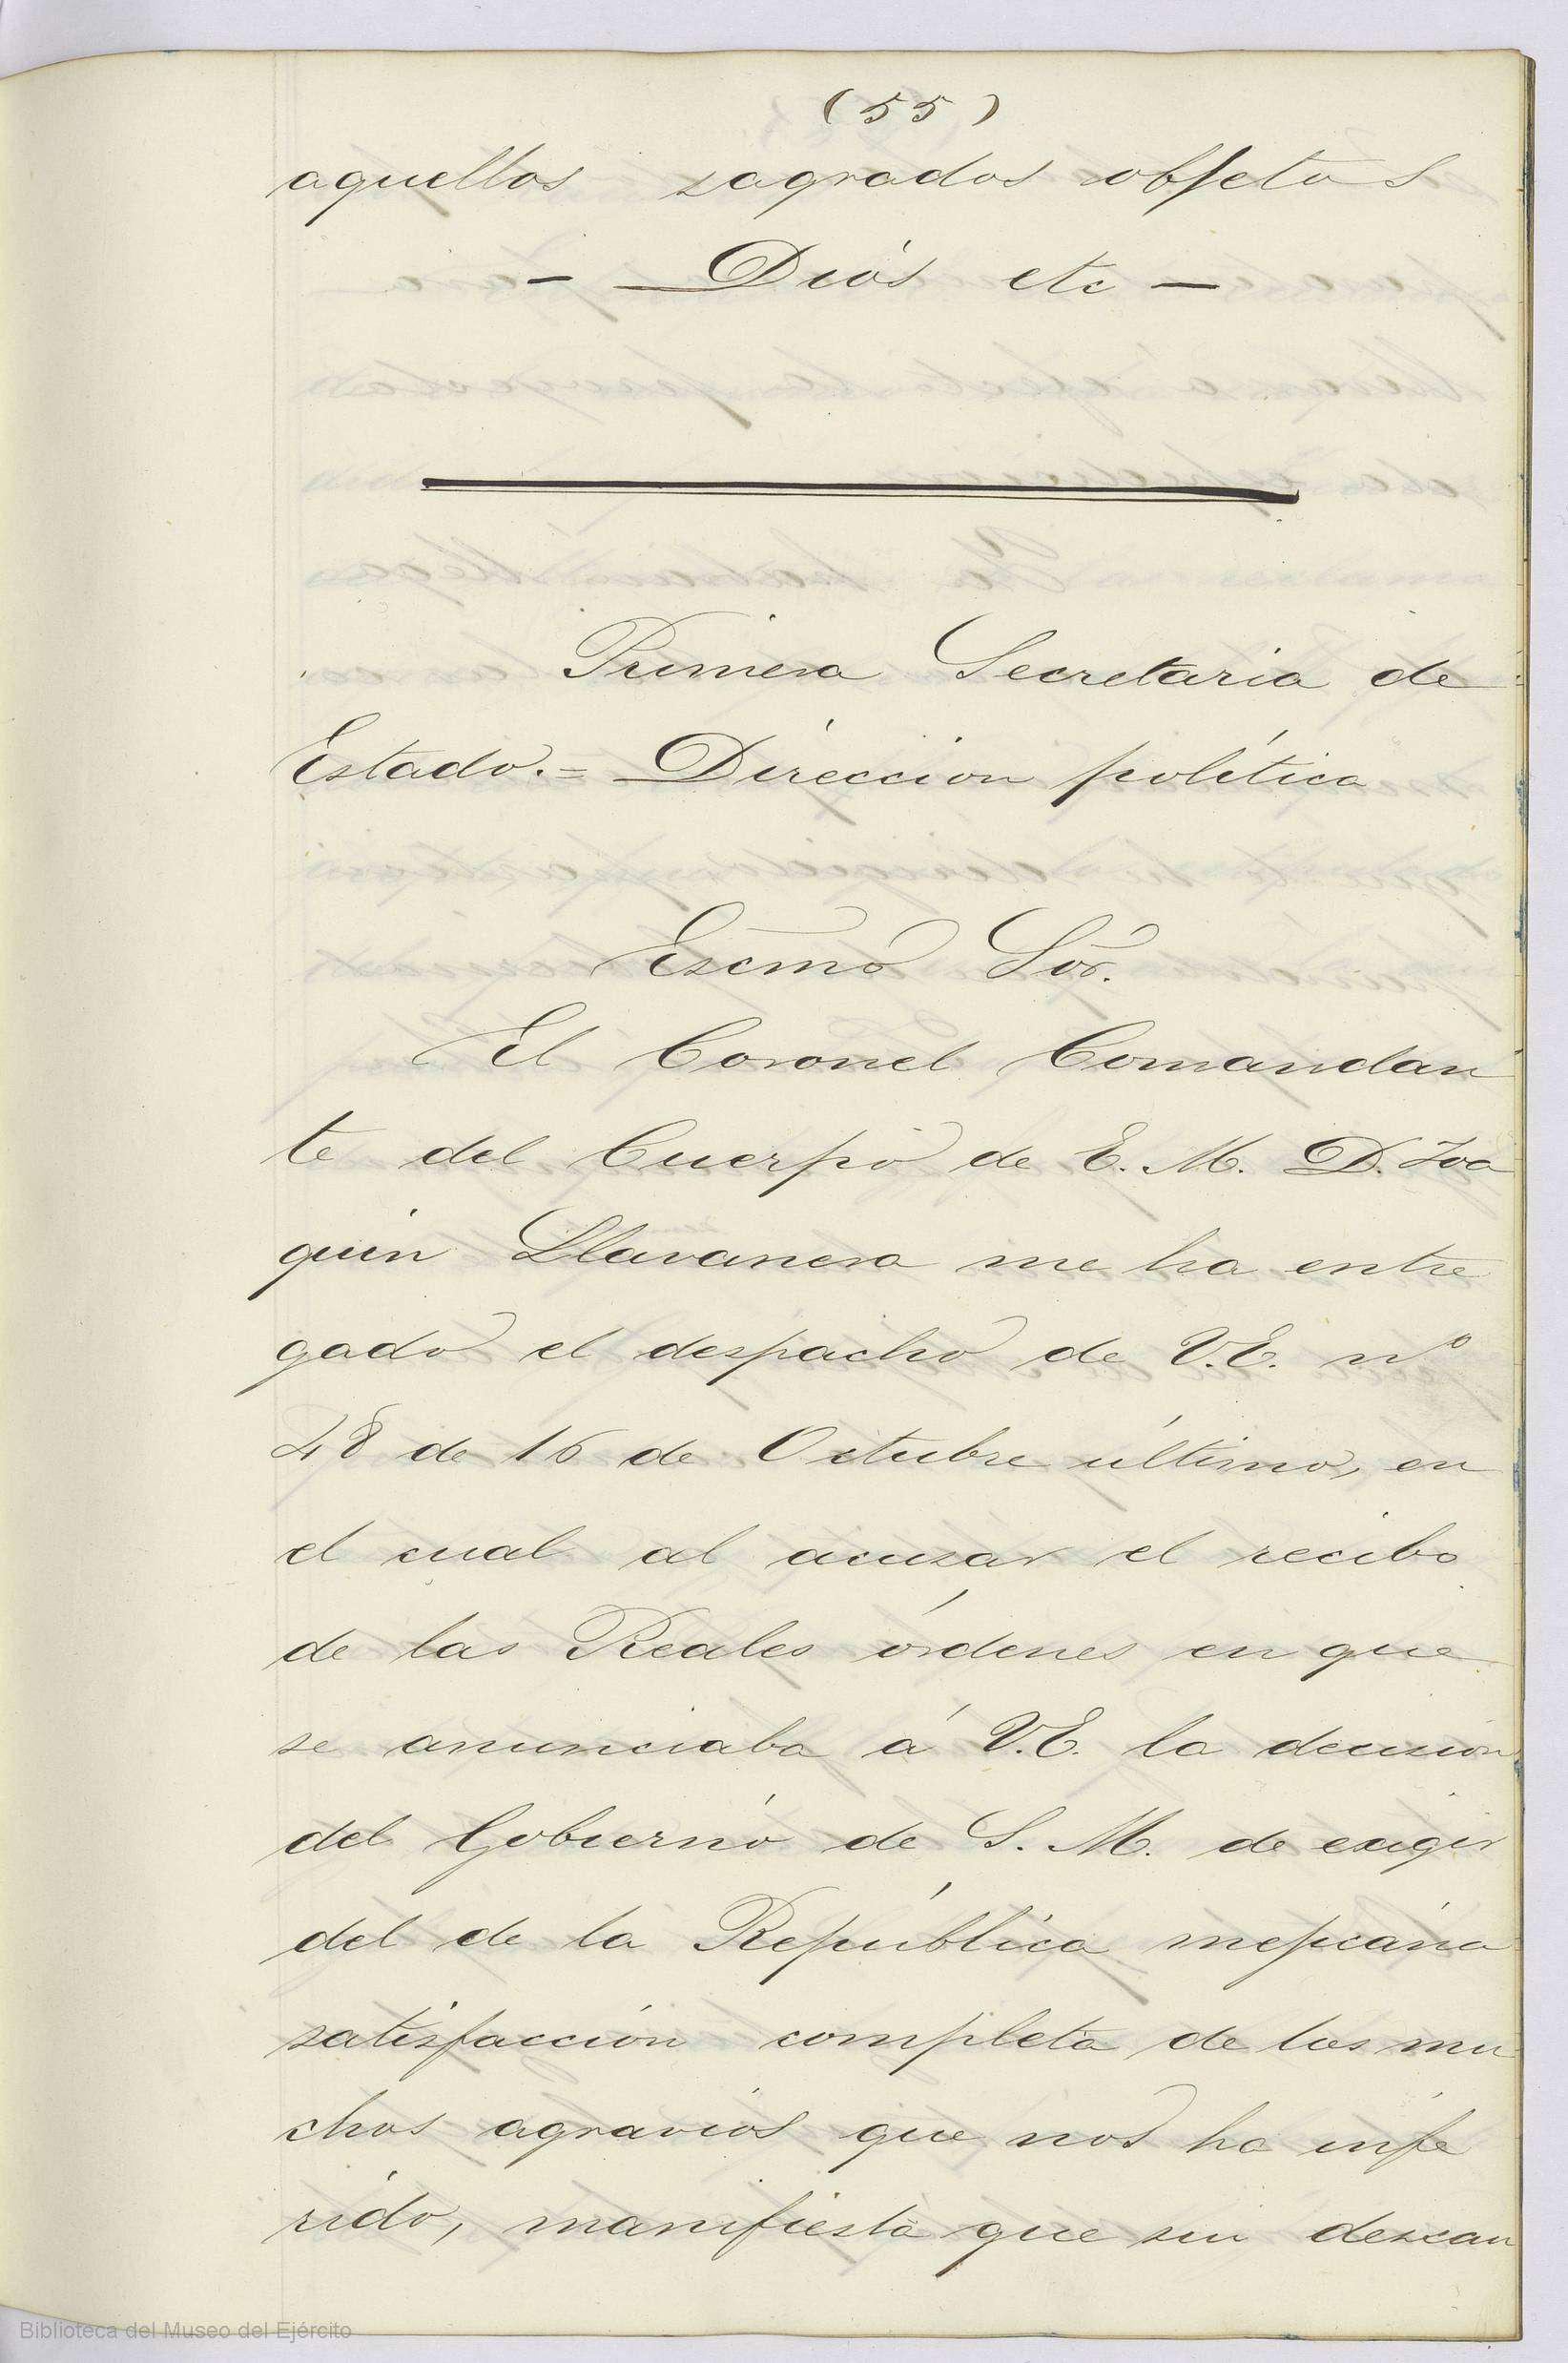 (55)
aquellos sagrados objetos
- Dios etc -
Primera Secretaria de
Estado.= Direccion política
Escmo Sor.
El Coronel Comandan
te del Cuerpo de E. M. D. Joa
quin Llavanera me ha entre
gado el despacho de V.E. nº
48 de 16 de Octubre último, en
el cual al acusar el recibo
de las Reales órdenes en que
se anunciaba á V.E. la decision
del Gobierno de S. M. de exigir
del de la República mejicana
satisfacción completa de los mu
chos agravios que nos ha infe
rido, manifiesta que sin descan
Biblioteca del Museo del Ejército